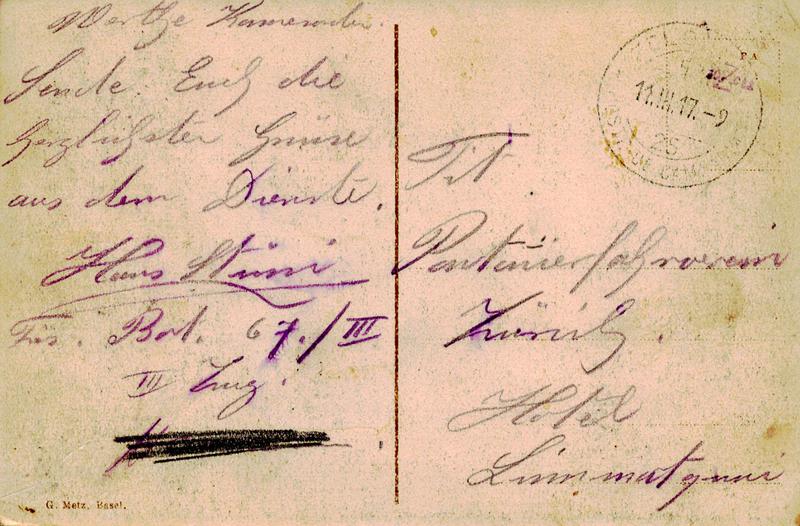 Werthe Kameraden.
Sende Euch die
herzlichsten Grüse
aus dem Dienste.
Hans Stüssi
Füs. Bat. 67./III
III Zug.
G. Metz, Basel.
11.III.17.-9
Tit
Pontonierfahrverein
Zürich.
Hotel
Limmatquai